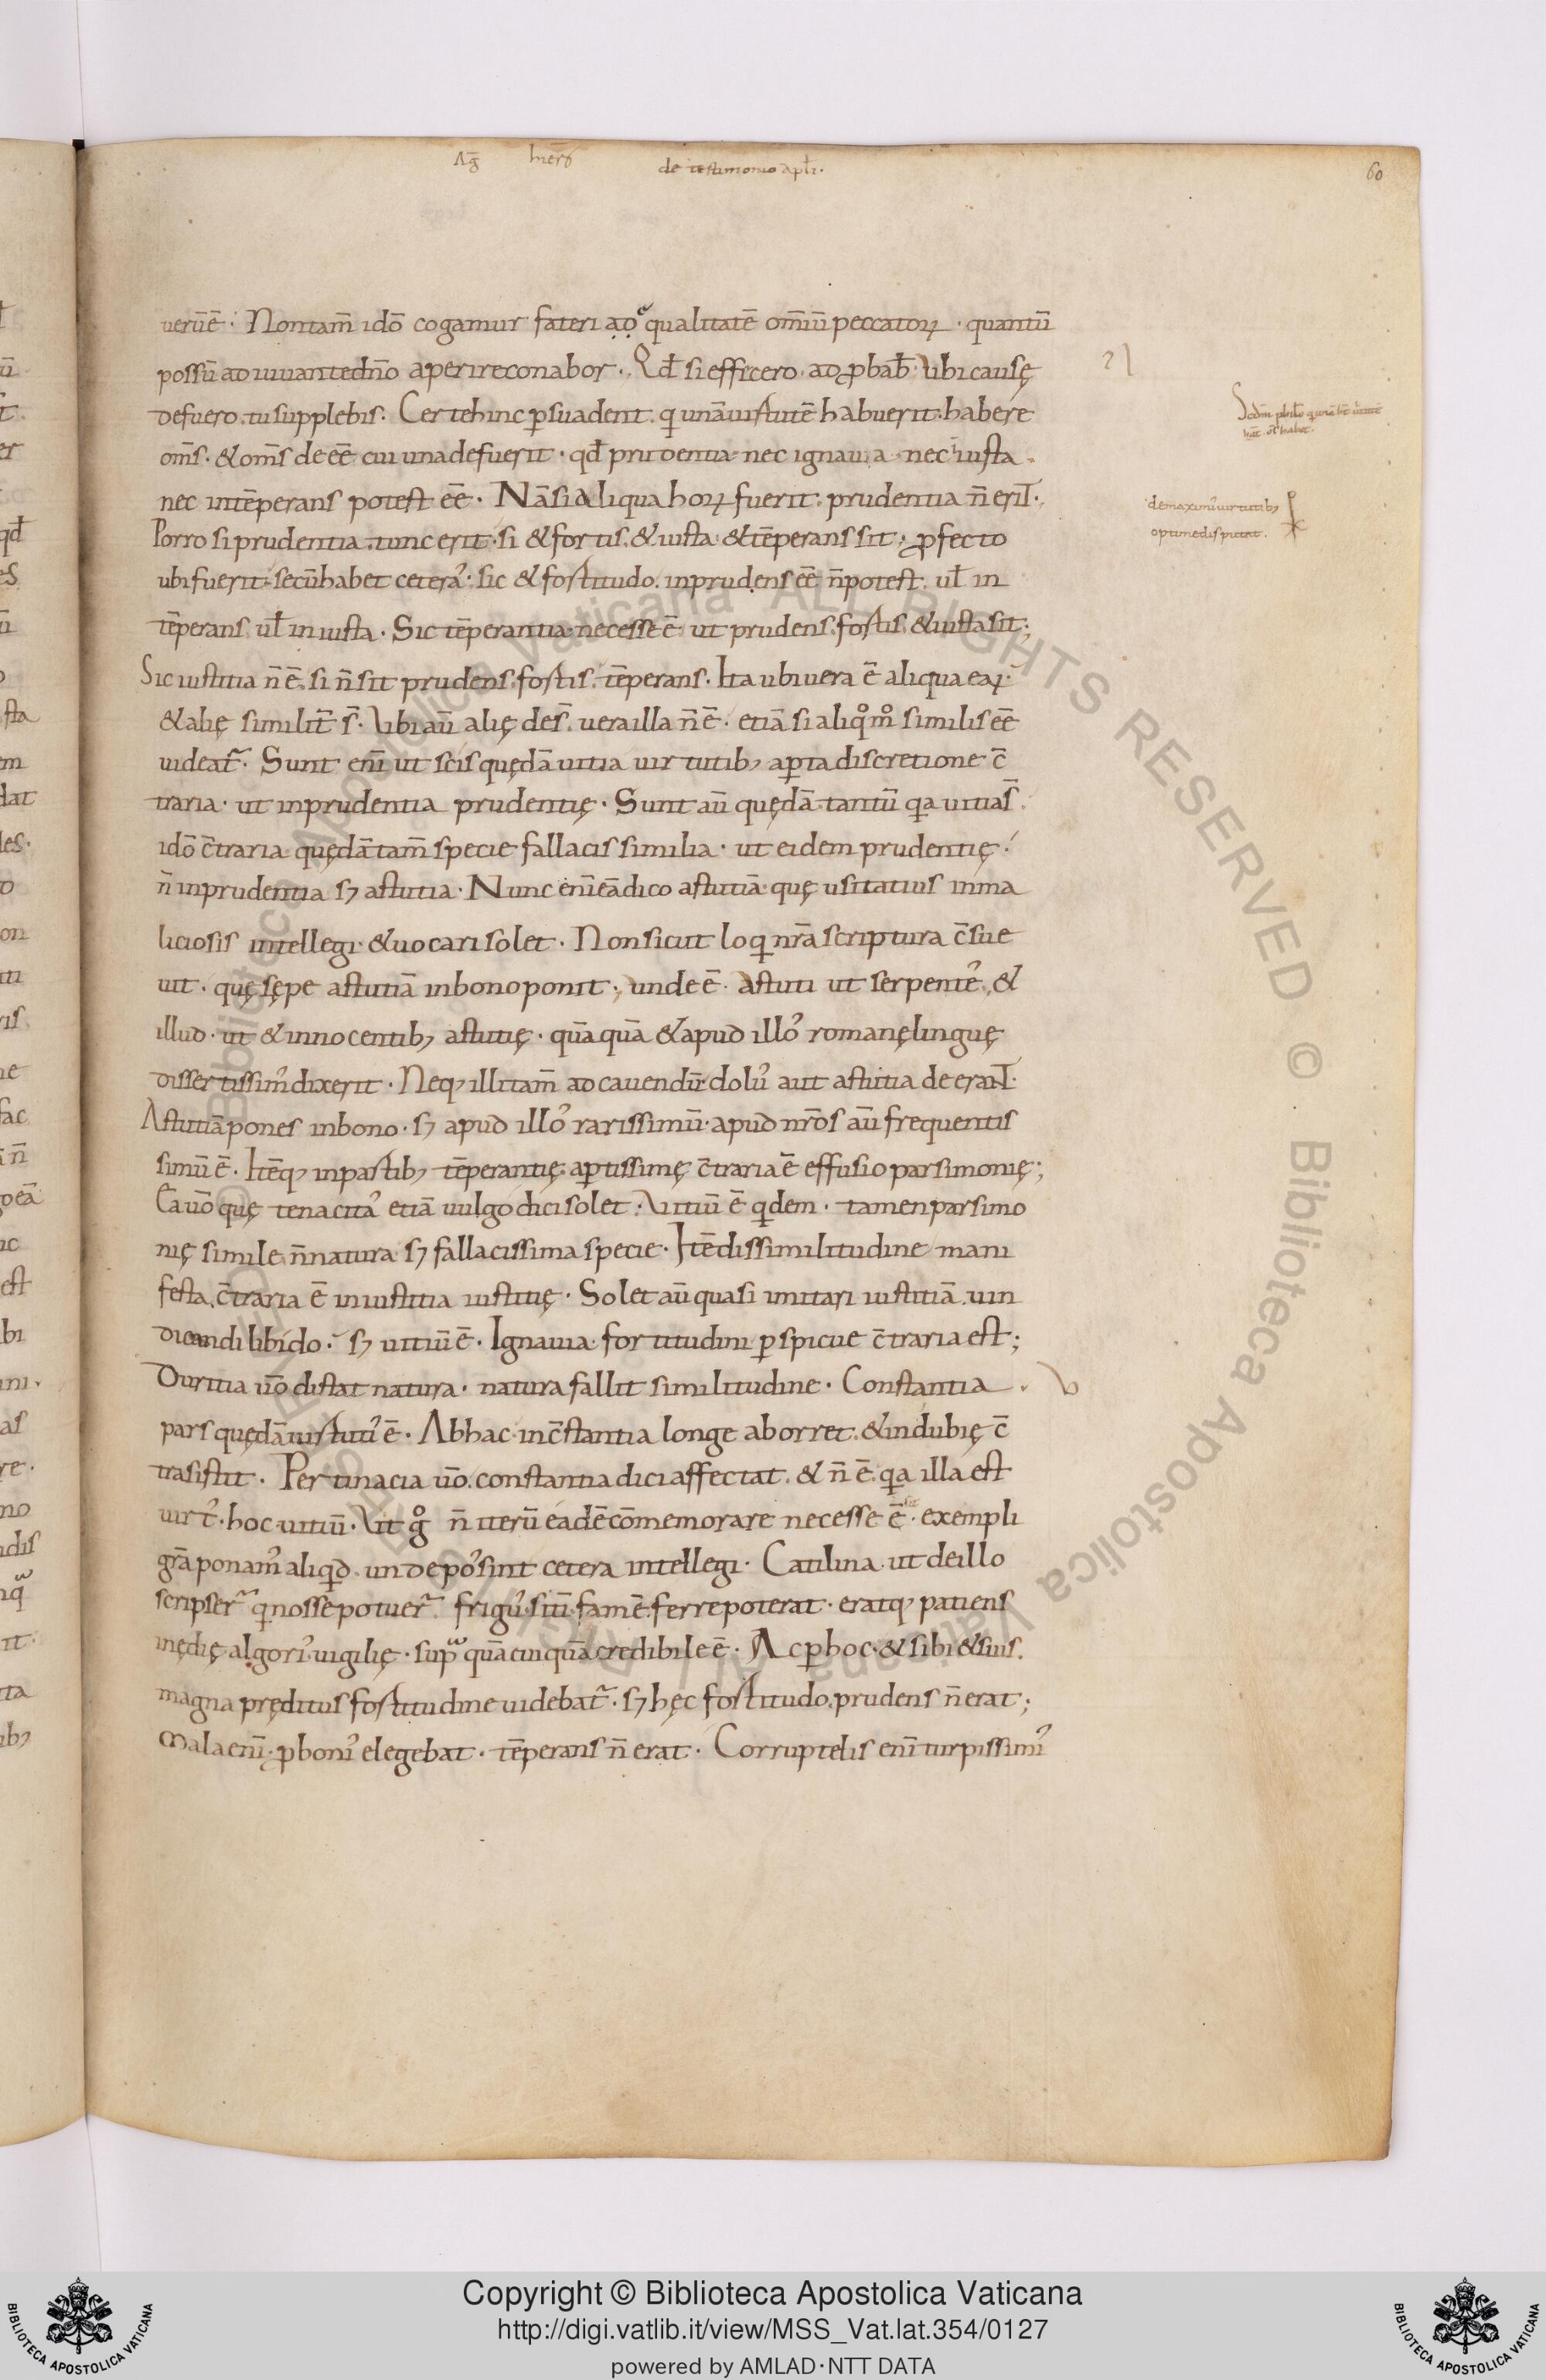 Aḡ hierō de testimonio apl̄i·
60
uerū ē · Non tam̄ idō cogamur fateri adęqualitatē om̄iū peccatoꝝ · quantū
possū adiuuante dn̄o aperire conabor · Qd̄ si effecero · ad ꝓbab̄ · Ubi causę
defuero · tu supplebis · Certe hinc ꝑsuadent · qi unā uirtutē habuerit · habere
om̄s · & om̄s deeē cui una defuerit · qd̄ prudentia nec ignaua · nec iusta ·
nec intēperans potest eē · Nā si aliqua hoꝝ fuerit · prudentia n̄ erit ·
Porro si prudentia tunc erit · si & fortis · & iusta · & tēperans sit · ꝓfecto
ubi fuerit · secū habet cetera᾽ · sic & fortitudo · inprudens eē n̄ potest · ul̄ in
tēperans · ul̄ iniusta · Sic tēperantia necesse ē ut prudens · fortis · & iusta sit ;
Sic iustitia n̄ ē · si n̄ sit prudens · fortis · tēperans · Ita ubi uera ē aliqua eaꝝ ·
& alię similit̄ s̄ · Ubi aū alię des̄ · uera illa n̄ ē · etiā si aliqͦ mͦ similis eē
uideat᷑ · Sunt eni̅ ut scis quędā uitia uirtutib; aꝑta discretione c̄
traria · ut inprudentia prudentię · Sunt aū quędā tantū qa uitia s̄ ·
idō c̄traria quędā tam̄ specie fallacis similia · ut eidem prudentię ·
n̄ inprudentia s; astutia · Nunc eni̅ eā dico astutiā · quę usitatius in ma
liciosis intellegi · & uocari solet · Non sicut loqi nr̄a scriptura c̄sue
uit · quę sępe astutiā in bono ponit · unde ē · astuti ut serpente᾽ · &
illud · ut & innocentib; astutię · quā quā & apud illo᾽ romanę linguę
dissertissim᾽ dixerit · Neq; illi tam̄ ad cauendū dolu᾽ aut astutia deerat ·
Astutiā pones in bono · s; apud illo᾽ rarissimū · apud nr̄os aū frequentis
simū ē · Itēq; in partib; tēperantię · aꝑtissimę c̄traria ē effusio parsimonię ;
Ea uō quę tenacita᾽ etiā uulgo dici solet · Uitiū ē qidem · tamen parsimo
nię simile n̄ natura s; fallacissima specie · Itē dissimilitudine mani
festa · c̄traria ē iniustitia iustitię · Solet aū quasi imitari iustitiā uin
dicandi libido · s; uitiū ē · Ignauia fortitudini ꝑspicue c̄traria est ;
Duritia uō distat natura · natura fallit similitudine · Constantia ·
pars quędā uirtuti᾽ ē · Ab hac inc̄stantia longe aborret · & indubię c̄
tra sistit · Pertinacia uō · constantia dici affectat · & n̄ ē · qa illa est
uirt᾽ · hoc uitiū · Ut gͦ n̄ iterū eadē cōmemorare necesse ē · exempli
gr̄a ponam᾽ aliqid · unde po᾽sint cetera intellegi · Catilina · ut de illo
scripser᷑ qi nosse potuer᷑ · frigu᾽ · sitī · famē · ferre poterat · eratq; patiens
inędię · algori᾽ uigilię · supra quā cuiquā credibile ē · Ac ꝑ hoc · & sibi & suis ·
magna pręditus fortitudine uidebat᷑ · s; hęc fortitudo · prudens n̄ erat ;
Mala eni̅ · ꝓ boni᾽ elegebat · tēperans n̄ erat · Corruptelis eni̅ turpissimi᾽
de maximi᾽ uirtutib;
optime disputat ·
© Biblioteca Apostolica Vaticana ALL RIGHTS RESERVED
Copyright © Biblioteca Apostolica Vaticana
http://digi.vatlib.it/view/MSS_Vat.lat.354/0127
powered by AMLAD·NTT DATA
BIBLIOTECA APOSTOLICA VATICANA
BIBLIOTECA APOSTOLICA VATICANA